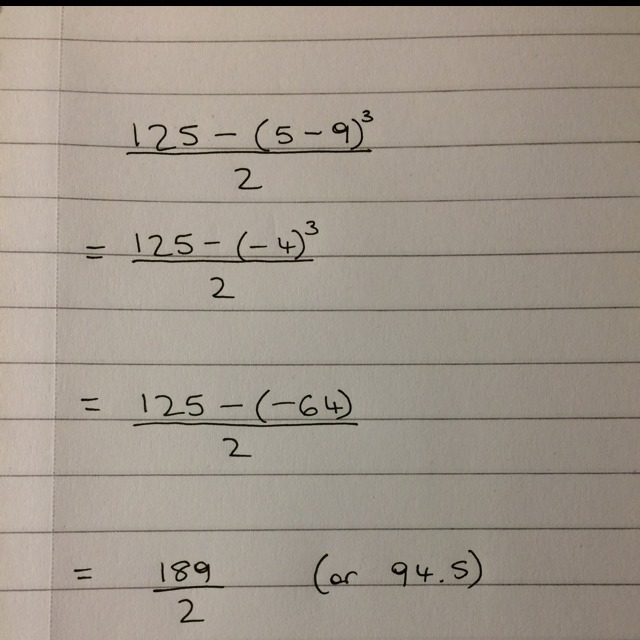 125 - (5 - 9)³
2
= 125 - (-4)³
2
= 125 - (-64)
2
= 189 (or 94.5)
2